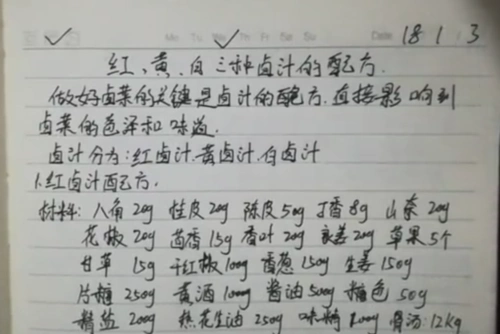 Mo Tu We Th Fr Sa Su Date 18 1 3
红、黄、白三种卤汁的配方.
做好卤菜的关键是卤汁的配方.直接影响到
卤菜的色泽和味道.
卤汁分为:红卤汁.黄卤汁.白卤汁
1.红卤汁配方.
材料:八角20g 桂皮20g 陈皮50g 丁香8g 山奈20g
花椒20g 茴香15g 香叶20g 良姜20g 草果5个
甘草 15g 干红椒100g 香葱150g 生姜150g
片糖 250g 黄酒1000g 酱油500g 糖色 50g
精盐 200g 热花生油 250g 味精 100g 骨汤:12Kg